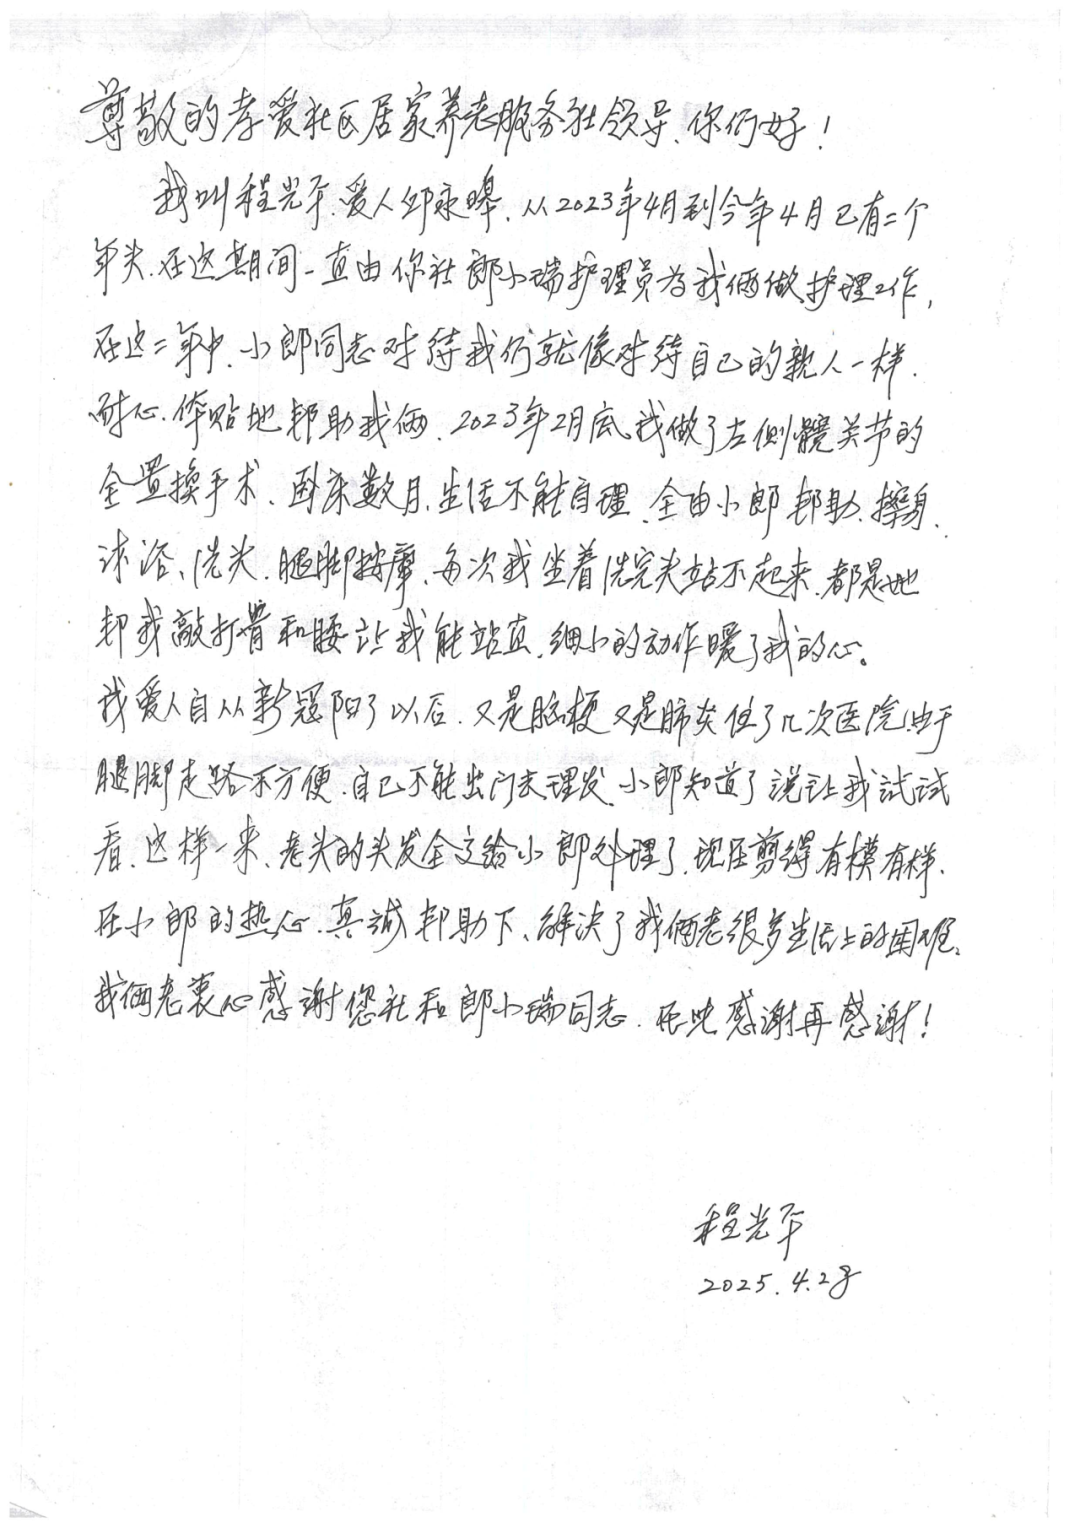 尊敬的孝爱社区居家养老服务社领导、你们好！
我叫程光平.爱人邱永嗥、从2023年4月到今年4月已有二个
年头.在这期间一直由你社郎小瑞护理员为我俩做护理工作,
在这二年中、小郎同志对待我们就像对待自己的親人一样.
耐心.体贴地帮助我俩、2023年2月底我做了左侧髋关节的
全置换手术、卧床数月.生活不能自理、全由小郎帮助.擦身、
沐浴、洗头.腿脚按摩、每次我坐着洗完头站不起来.都是她
帮我敲打臀和腰让我能站直.细小的动作暖了我的心。
我爱人自从新冠阳了以后.又是脑梗又是肺炎住了几次医院.由于
腿脚走路不方便.自己不能出门去理发、小郎知道了说让我试试
看、这样一来、老头的头发全交给小郎处理了、现在剪得有模有样.
在小郎的热心.真诚帮助下、解决了我俩老很多生活上的困难、
我俩老衷心感谢您社和郎小瑞同志.在此感谢再感谢!
程光平
2025.4.28